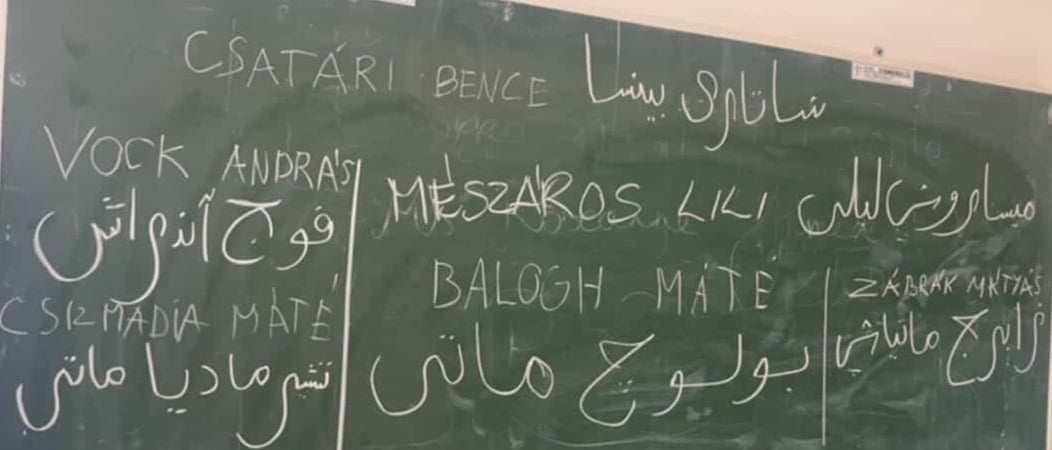 CSATÁRI BENCE شاتاري بينسا
VOCK ANDRÁS
فوج آندراش
MÉSZÁROS LILI ميساروش ليلي
BALOGH MÁTÉ
بولوج ماتي
ZÁBRÁK MÁTYÁS
زابرج ماتياش
CSIZMADIA MÁTÉ
ماديا ماتي